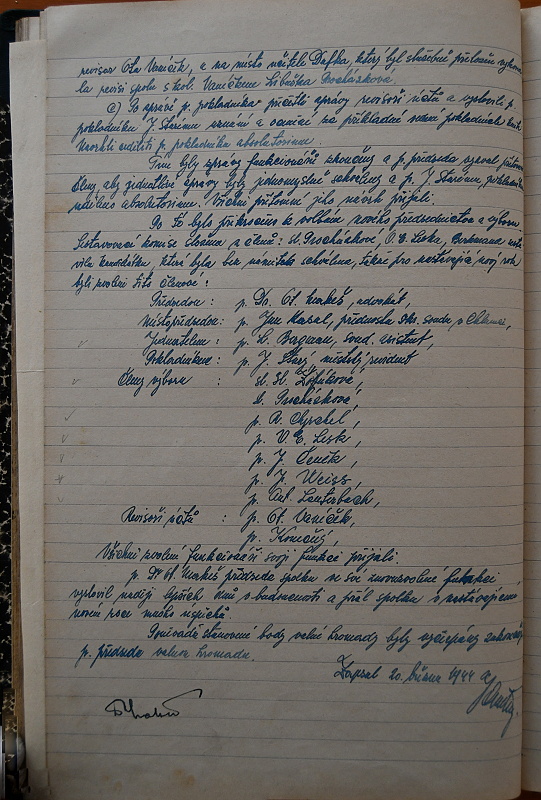 revisor Ota Vaníček, a na místo učitele Dufka, který byl služebně přeložen vykona-
la revisi spolu s kol. Vaníčkem Liběna Procházková
e) Po zprávě p. pokladníka přečtli zprávy revisoři účtů a vyslovili p.
pokladníku J. Starému uznání a ocenění za příkladné vedení pokladních knih
navrhli uděliti p. pokladníku absolutorium.
Tím byly zprávy funkcionářů skončeny a p. předseda vyzval přítomné
členy aby jednotlivé zprávy byly jednomyslně schváleny a p. J. Starému, pokladníku
uděleno absolutorium. Všichni přítomní jeho návrh přijali.
Po té bylo přikročeno k volbám nového předsednictva a výboru.
Sestavovací komise složena z členů: sl. Procházkové, V. E. Liska, sesta-
vila kandidátku, která byla bez námitek schválena, takže pro nastávající nový rok
byli zvoleni tito členové:
Předsedou : p. Dr. Ot. Makeš, advokát,
Místopředsedou: p. Jan Kasal, přednosta okr. soudu, v Chlumci,
Jednatelem : p. L. Bagman, soud. asistent,
Pokladníkem : p. J. Starý, městský revident
Členy výboru : sl. Sl.
sl. Procházková,
p. R. Chrchel,
p. V. E. Lisk,
p. J. Čeněk,
p. J. Weiss,
p. Ant. Lauterbach,
Revisoři účtů : p. Ot. Vaníček,
p. Konečný,
Všichni zvolení funkcionáři svoji funkci přijali.
p. Dr. Ot. Makeš předseda spolku se své znovuzvolené funkci
vyslovil naději lepších dnů v budoucnosti a přál spolku v nastávajícím
novém roce mnoho úspěchů.
Poněvadž stanovené body valné hromady byly vyčerpány zakončil
p. předseda valnou hromadu.
Zapsal 20. března 1944